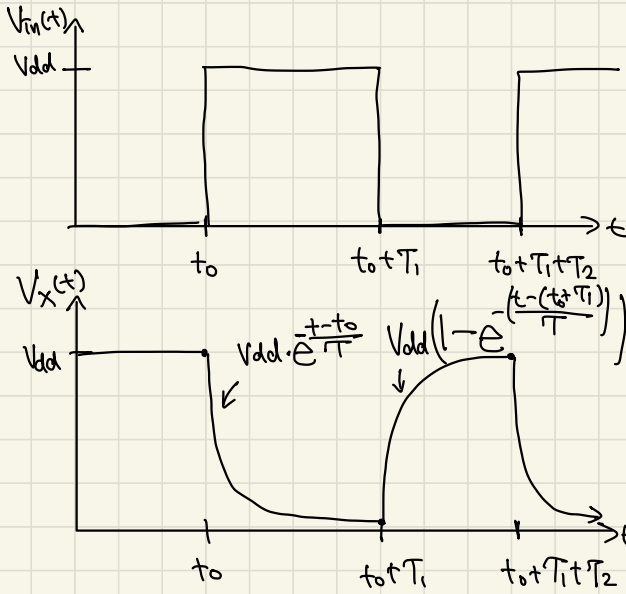 Vin(t)
Vdd
t
t₀ t₀+T₁ t₀+T₁+T₂
Vx(t)
Vdd
Vdd·e^-(t-t₀)/T Vdd(1-e^-((t-(t₀+T₁))/T))
t
t₀ t₀+T₁ t₀+T₁+T₂